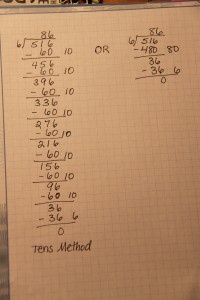 86
6)516
- 60 10
456
- 60 10
396
- 60 10
336
- 60 10
276
- 60 10
216
- 60 10
156
- 60 10
96
- 60 10
36
- 36 6
0
Tens Method
OR
86
6)516
- 480 80
36
- 36 6
0